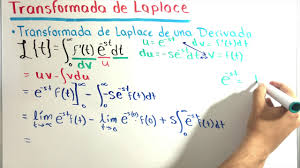 Transformada de Laplace
• Transformada de Laplace de una Derivada
ℒ{f'(t)} = ∫₀^∞ f'(t) e^{-st} dt
dv u
u = e^{-st} dv = f'(t)dt
du = -se^{-st}dt v = f(t)
= uv - ∫v du
= e^{-st} f(t)]₀^∞ - ∫₀^∞ -se^{-st} f(t)dt
e^{-st} =
= lim t→∞ e^{-st} f(t) - lim t→0 e^{-s(0)} f(0) + s∫₀^∞ e^{-st} f(t)dt
=